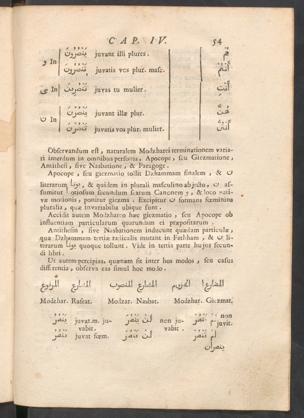 CAP. IV. 54
و In يَنْصُرُونَ juvant illi plures. هُمْ
تَنْصُرُونَ juvatis vos plur. masc. أَنْتُمْ
ى In تَنْصُرِينَ juvas tu mulier. أَنْتِ
ن In يَنْصُرْنَ juvant illæ plur. هُنَّ
تَنْصُرْنَ juvatis vos plur. mulier. أَنْتُنَّ
Observandum est, naturalem Modzharei terminationem varia-
ri interdum in omnibus personis, Apocope, seu Giezmatione,
Antithesi, sive Nasbatione, & Paragoge.
Apocope, seu giezmatio tollit Dzhammam finalem, & ن
literarum & quidem in plurali masculino abjecto, ن as-
sumitur otiosum secundum Canonem 7, & loco
motionis, ponitur giezma. Excipitur ن formans fœminina
pluralia, quæ invariabilia ubique sunt.
Accidit autem Modzhareo hæc giezmatio, seu Apocope ob
influentiam particularum quarumdam ei præpositarum.
Antithesin, sive Nasbationem inducunt quædam particulæ,
qua Dzhammam tertiæ radicalis mutant in Fathham, & ن li-
terarum quoque tollunt. Vide in tertia parte hujus secun-
di libri.
Ut autem percipias, quænam sit inter hos modos, seu casus
differentia, observa eas simul hoc modo.
المضارع المجزوم المضارع المنصوب المضارع المرفوع
Modzhar. Rafeat. Modzar. Nasbat. Modzhar. Giezmat.
يَنْصُرُ juvat m. ju- لَنْ يَنْصُرَ non ju- لَمْ يَنْصُرْ non
vabit. vabit. juvit.
تَنْصُرُ juvat fœm. لَنْ تَنْصُرَ لَمْ تَنْصُرْ
يَنْصُرَانِ